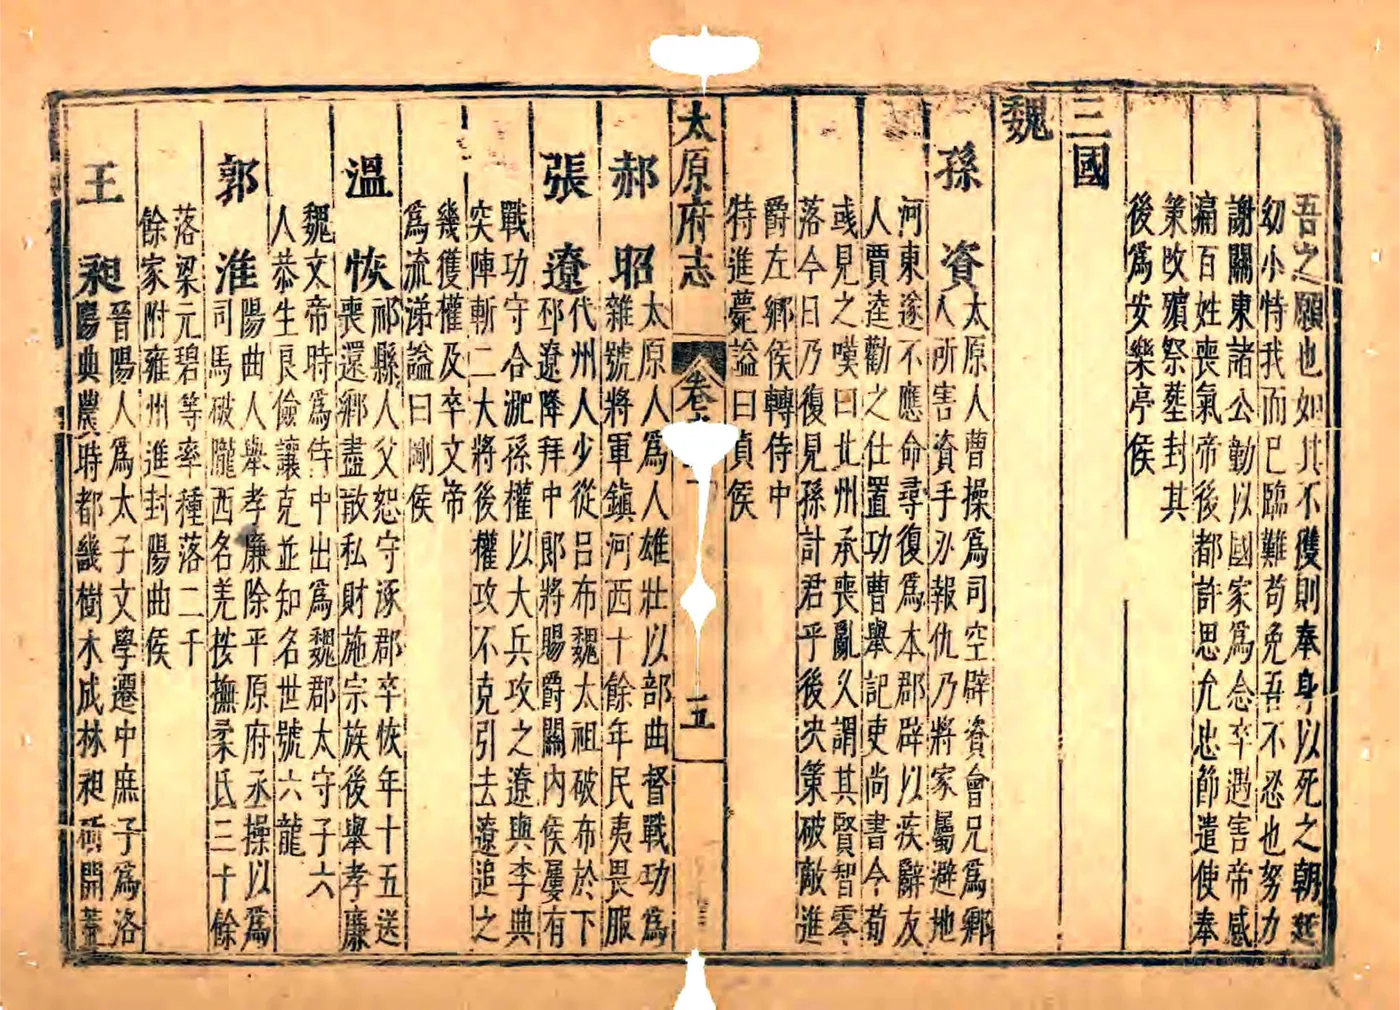 吾之願也如其不獲則奉身以死之朝廷
幼小恃我而已臨難苟免吾不忍也努力
謝關東諸公勤以國家爲念卒遇害帝感
滿百姓喪氣帝後都許思允忠節遣使奉
策改殯祭葬封其
後爲安樂亭侯
三國
魏
孫資
太原人曹操爲司空辟資會兄爲鄉
人所害資手刃報仇乃將家屬避地
河東遂不應命尋復爲本郡辟以疾辭友
人賈逵勸之仕置功曹舉記吏尚書令荀
彧見之嘆曰北州承喪亂久謂其賢智零
落今日乃復見孫計君乎後決策破敵進
爵左鄉侯轉侍中
特進薨謚曰貞侯
太原府志
卷
五
郝昭
太原人爲人雄壯以部曲督戰功爲
雜號將軍鎮河西十餘年民夷畏服
張遼
代州人少從呂布魏太祖破布於下
邳遼降拜中郎將賜爵關內侯屢有
戰功守合淝孫權以大兵攻之遼與李典
突陣斬二大將後權攻不克引去遼追之
幾獲權及卒文帝
爲流涕謚曰剛侯
溫恢
祁縣人父恕守涿郡卒恢年十五送
喪還鄉盡散私財施宗族後舉孝廉
魏文帝時爲侍中出爲魏郡太守子六
人恭生良儉讓克並知名世號六龍
郭淮
陽曲人舉孝廉除平原府丞操以爲
司馬破隴西名羌按撫柔氏三十餘
落梁元碧等率種落二千
餘家附雍州進封陽曲侯
王昶
晉陽人爲太子文學遷中庶子爲洛
陽典農時都畿樹木成林昶斫開荒